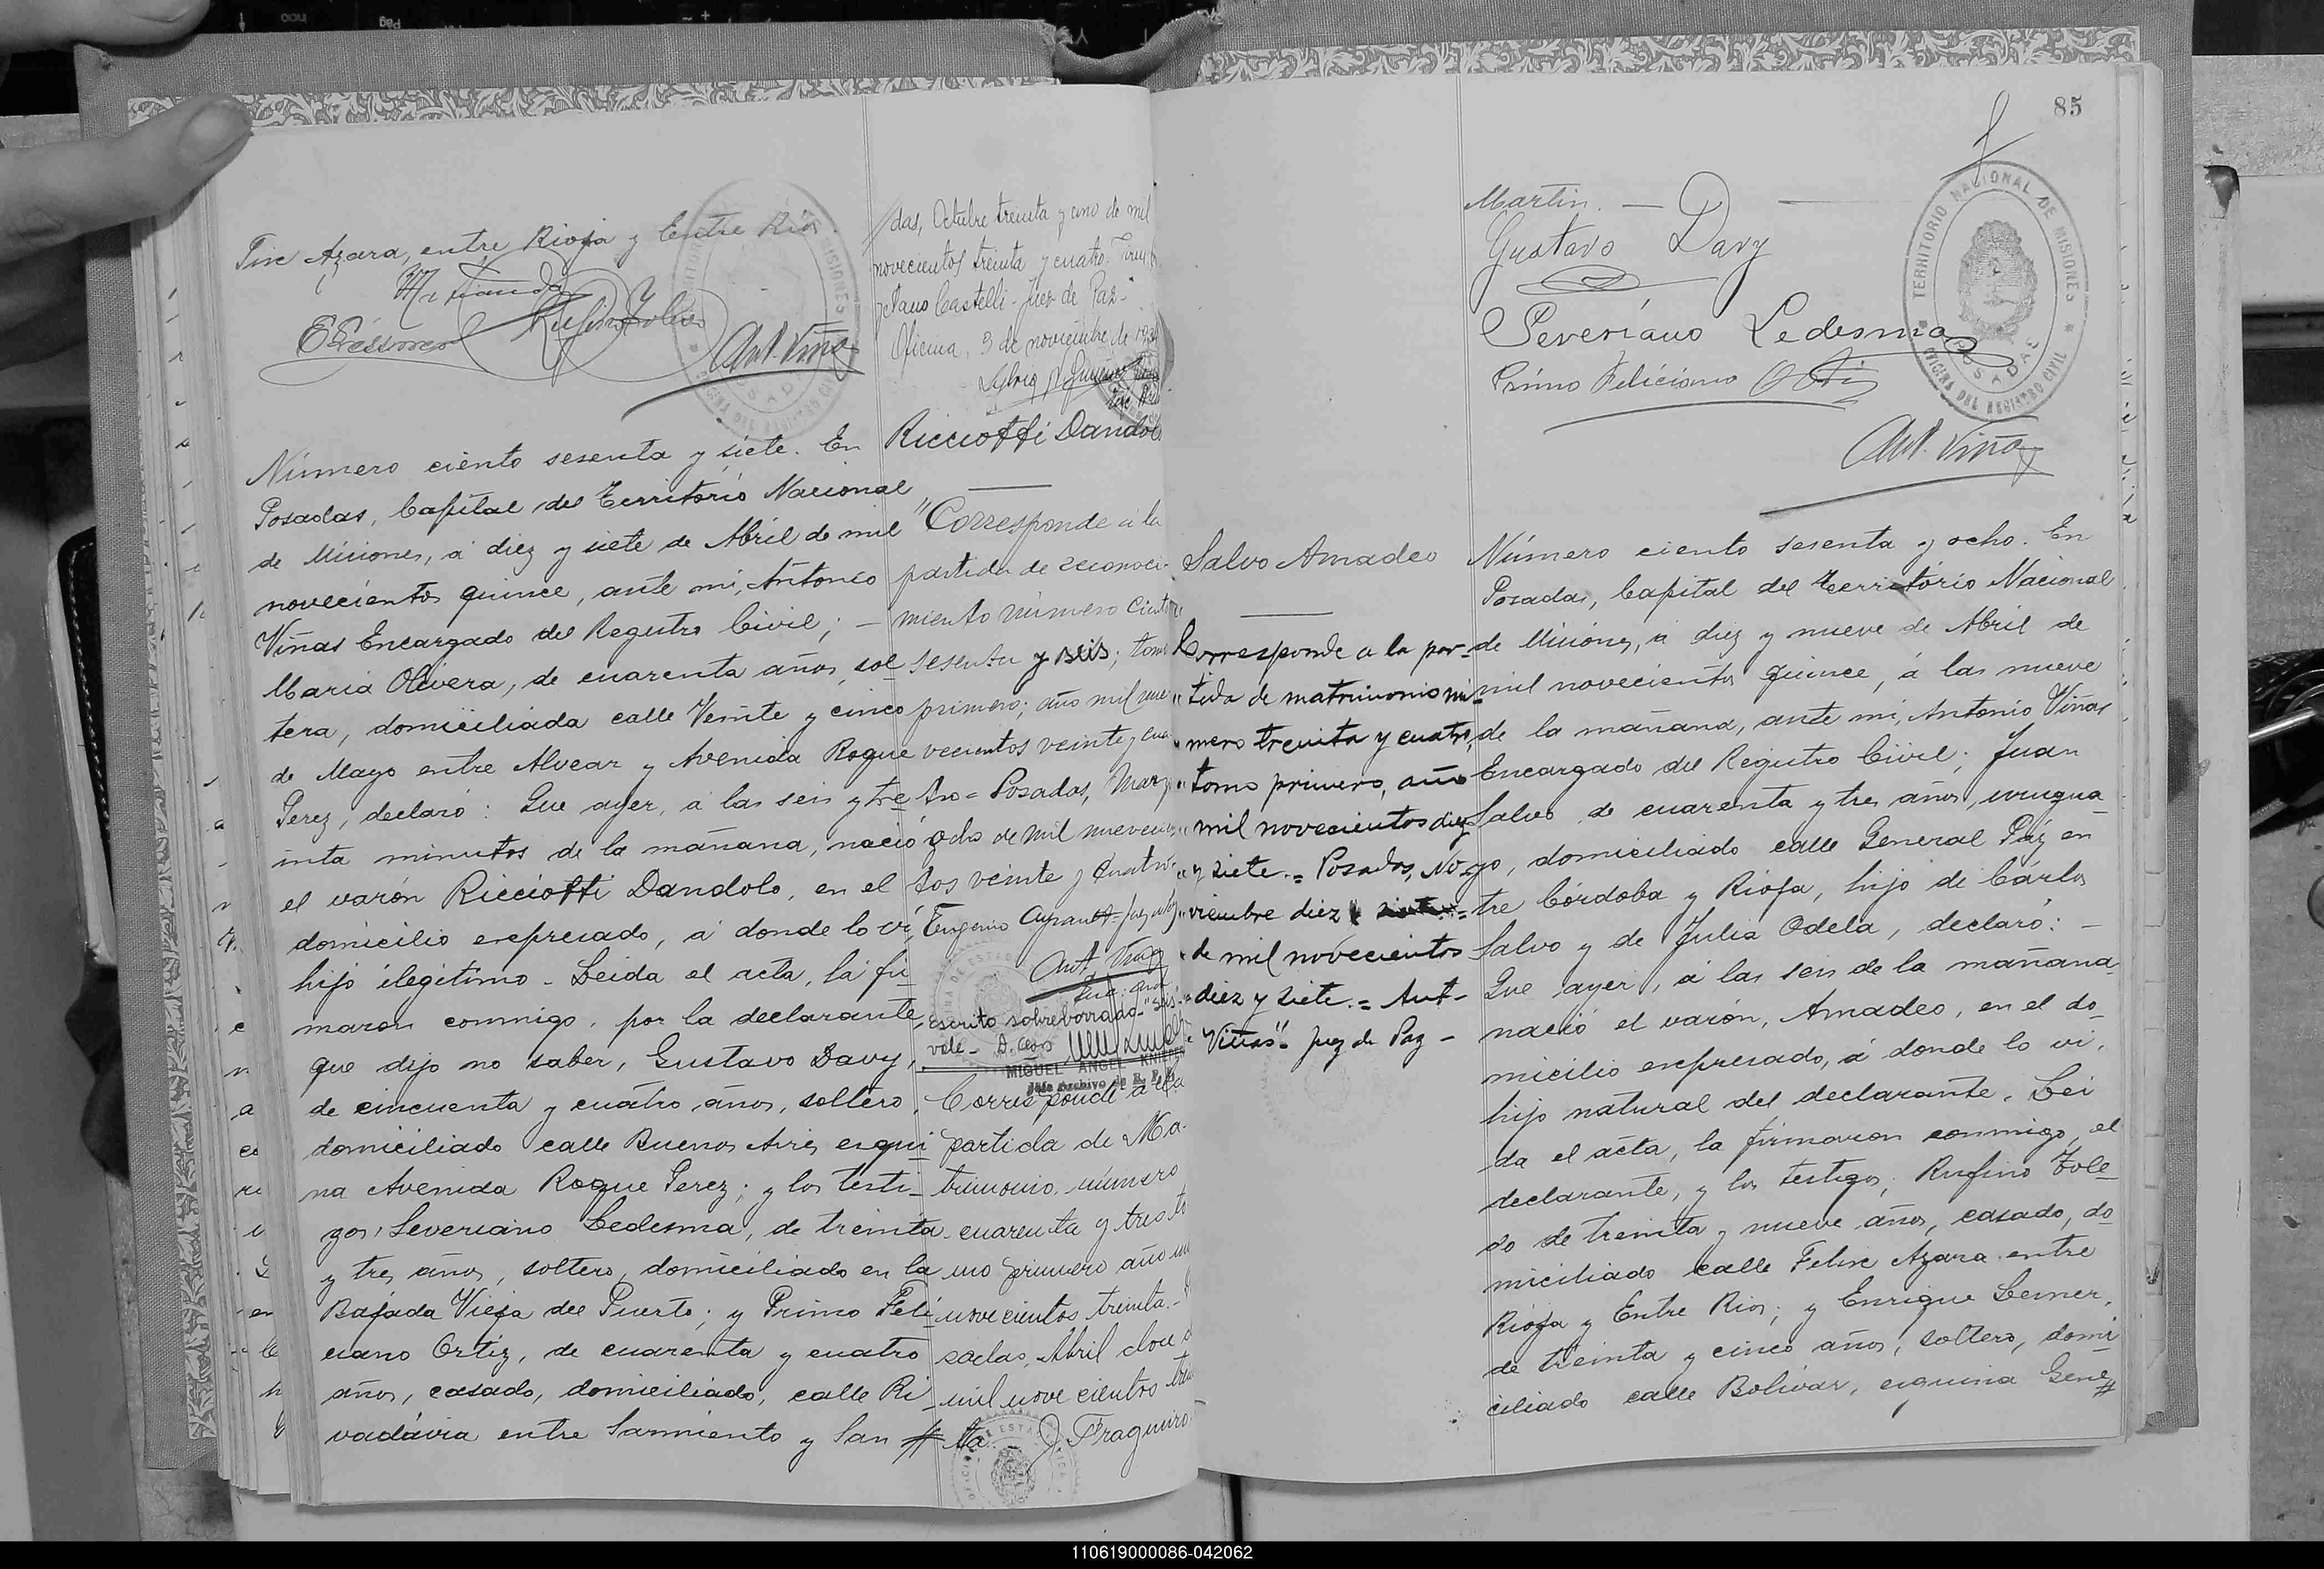 lix Azara, entre Rioja y Entre Rios.
Ant. Viñas
Número ciento sesenta y siete. En
Posadas, Capital del Territorio Nacional
de Misiones, á diez y siete de Abril de mil
novecientos quince, ante mi, Antonio
Viñas Encargado del Registro Civil; –
Maria Olivera, de cuarenta años, sol
tera, domiciliada calle Veinte y cinco
de Mayo entre Alvear y Avenida Roque
Perez, declaró: Que ayer, á las seis y tre
inta minutos de la mañana, nació
el varón Ricciotti Dandolo, en el
domicilio expresado, á donde lo ví,
hijo ilegítimo. Leida el acta, la fir
maron conmigo, por la declarante
que dijo no saber, Gustavo Davy,
de cincuenta y cuatro años, soltero,
domiciliado calle Buenos Aires esqui
na Avenida Roque Perez; y los testi
gos, Severiano Ledesma, de treinta
y tres años, soltero, domiciliado en la
Bajada Vieja del Puerto; y Primo Feli
ciano Ortiz, de cuarenta y cuatro
años, casado, domiciliado, calle Ri
vadavia entre Sarmiento y San #
das, Octubre treinta y uno de mil
novecientos treinta y cuatro.
Castelli - Juez de Paz -
Oficina, 3 de noviembre de
Ricciotti Dandolo
"Corresponde á la
partida de reconoci-
miento número ciento
sesenta y seis; tomo
primero; año mil nue
vecientos veinte y cua
tro = Posadas, Marzo
ocho de mil nuevecien
tos veinte y cuatro.
Eugenio
Ant. Viñas
escrito sobreborrado - "seis"
vale -
MIGUEL ANGEL
Jefe Archivo de E. P.
Corresponde a la
partida de Ma-
trimonio, número
cuarenta y tres to
mo primero año mil
novecientos treinta. -
sadas, Abril doce
mil novecientos trein
ta. J. Fragueiro
85
Martin. — Davy
Gustavo Davy
Severiano Ledesma
Primo Feliciano Ortiz
Ant. Viñas
TERRITORIO NACIONAL DE MISIONES
OFICINA DEL REGISTRO CIVIL
POSADAS
Salvo Amadeo
Corresponde a la par-
"tida de matrimonio nú-
"mero treinta y cuatro,
"tomo primero, año
"mil novecientos diez
"y siete. = Posadas, No-
"viembre diez
"de mil novecientos
"diez y siete. = Ant-
"Viñas" Juez de Paz -
Número ciento sesenta y ocho. En
Posadas, Capital del Territorio Nacional
de Misiones, á diez y nueve de Abril de
mil novecientos quince, á las nueve
de la mañana, ante mi, Antonio Viñas
Encargado del Registro Civil; Juan
Salvo de cuarenta y tres años, urugua
yo, domiciliado calle General Paz en
tre Córdoba y Rioja, hijo de Cárlos
Salvo y de Julia Odela, declaró: –
Que ayer, á las seis de la mañana
nació el varón, Amadeo, en el do
micilio expresado, á donde lo ví,
hijo natural del declarante. Lei
da el acta, la firmaron conmigo, el
declarante, y los testigos, Rufino Tole
do de treinta y nueve años, casado, do
miciliado calle Felix Azara entre
Rioja y Entre Rios; y Enrique Lerner,
de treinta y cinco años, soltero, domi
ciliado calle Bolivar, esquina Gene #
110619000086-042062